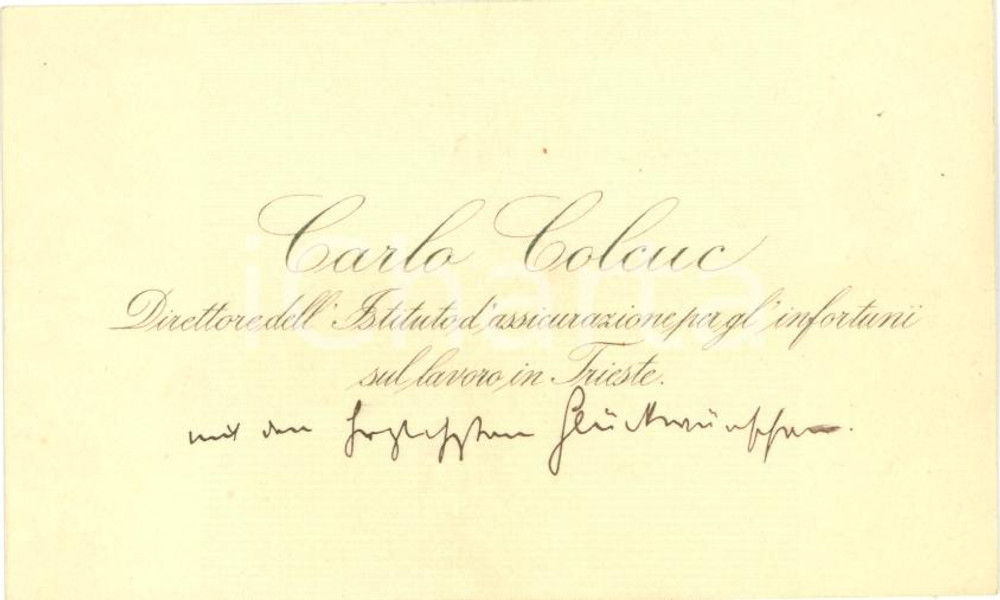 Carlo Colcuc
Direttore dell' Istituto d'assicurazione per gl' infortunii
sul lavoro in Trieste.
mit den herzlichsten Glückwünschen.
icharta